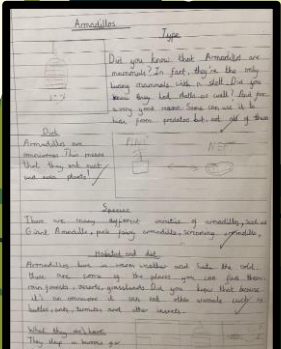 Armadillos
Type
Did you know that Armadillos are
mammals? In fact, they're the only
living mammals with a shell. Did you
know they had shells as well? And for
a very good reason. Some can use it to
hide from predators but not all of them
Diet
Armadillos are
omnivores. This means
that they eat meat
and even plants!
PLANT
MEAT
Species
There are many different varieties of armadillo, such as
Giant Armadillo, pink fairy armadillo, screaming armadillo,
Habitat and diet
Armadillos live in warm weather and hate the cold.
these are some of the places you can find them:
rain forests, deserts, grasslands. Did you know that because
it's an omnivore it can eat other animals such as
beetles, ants, termites and other insects.
What they
They sleep in burrows for